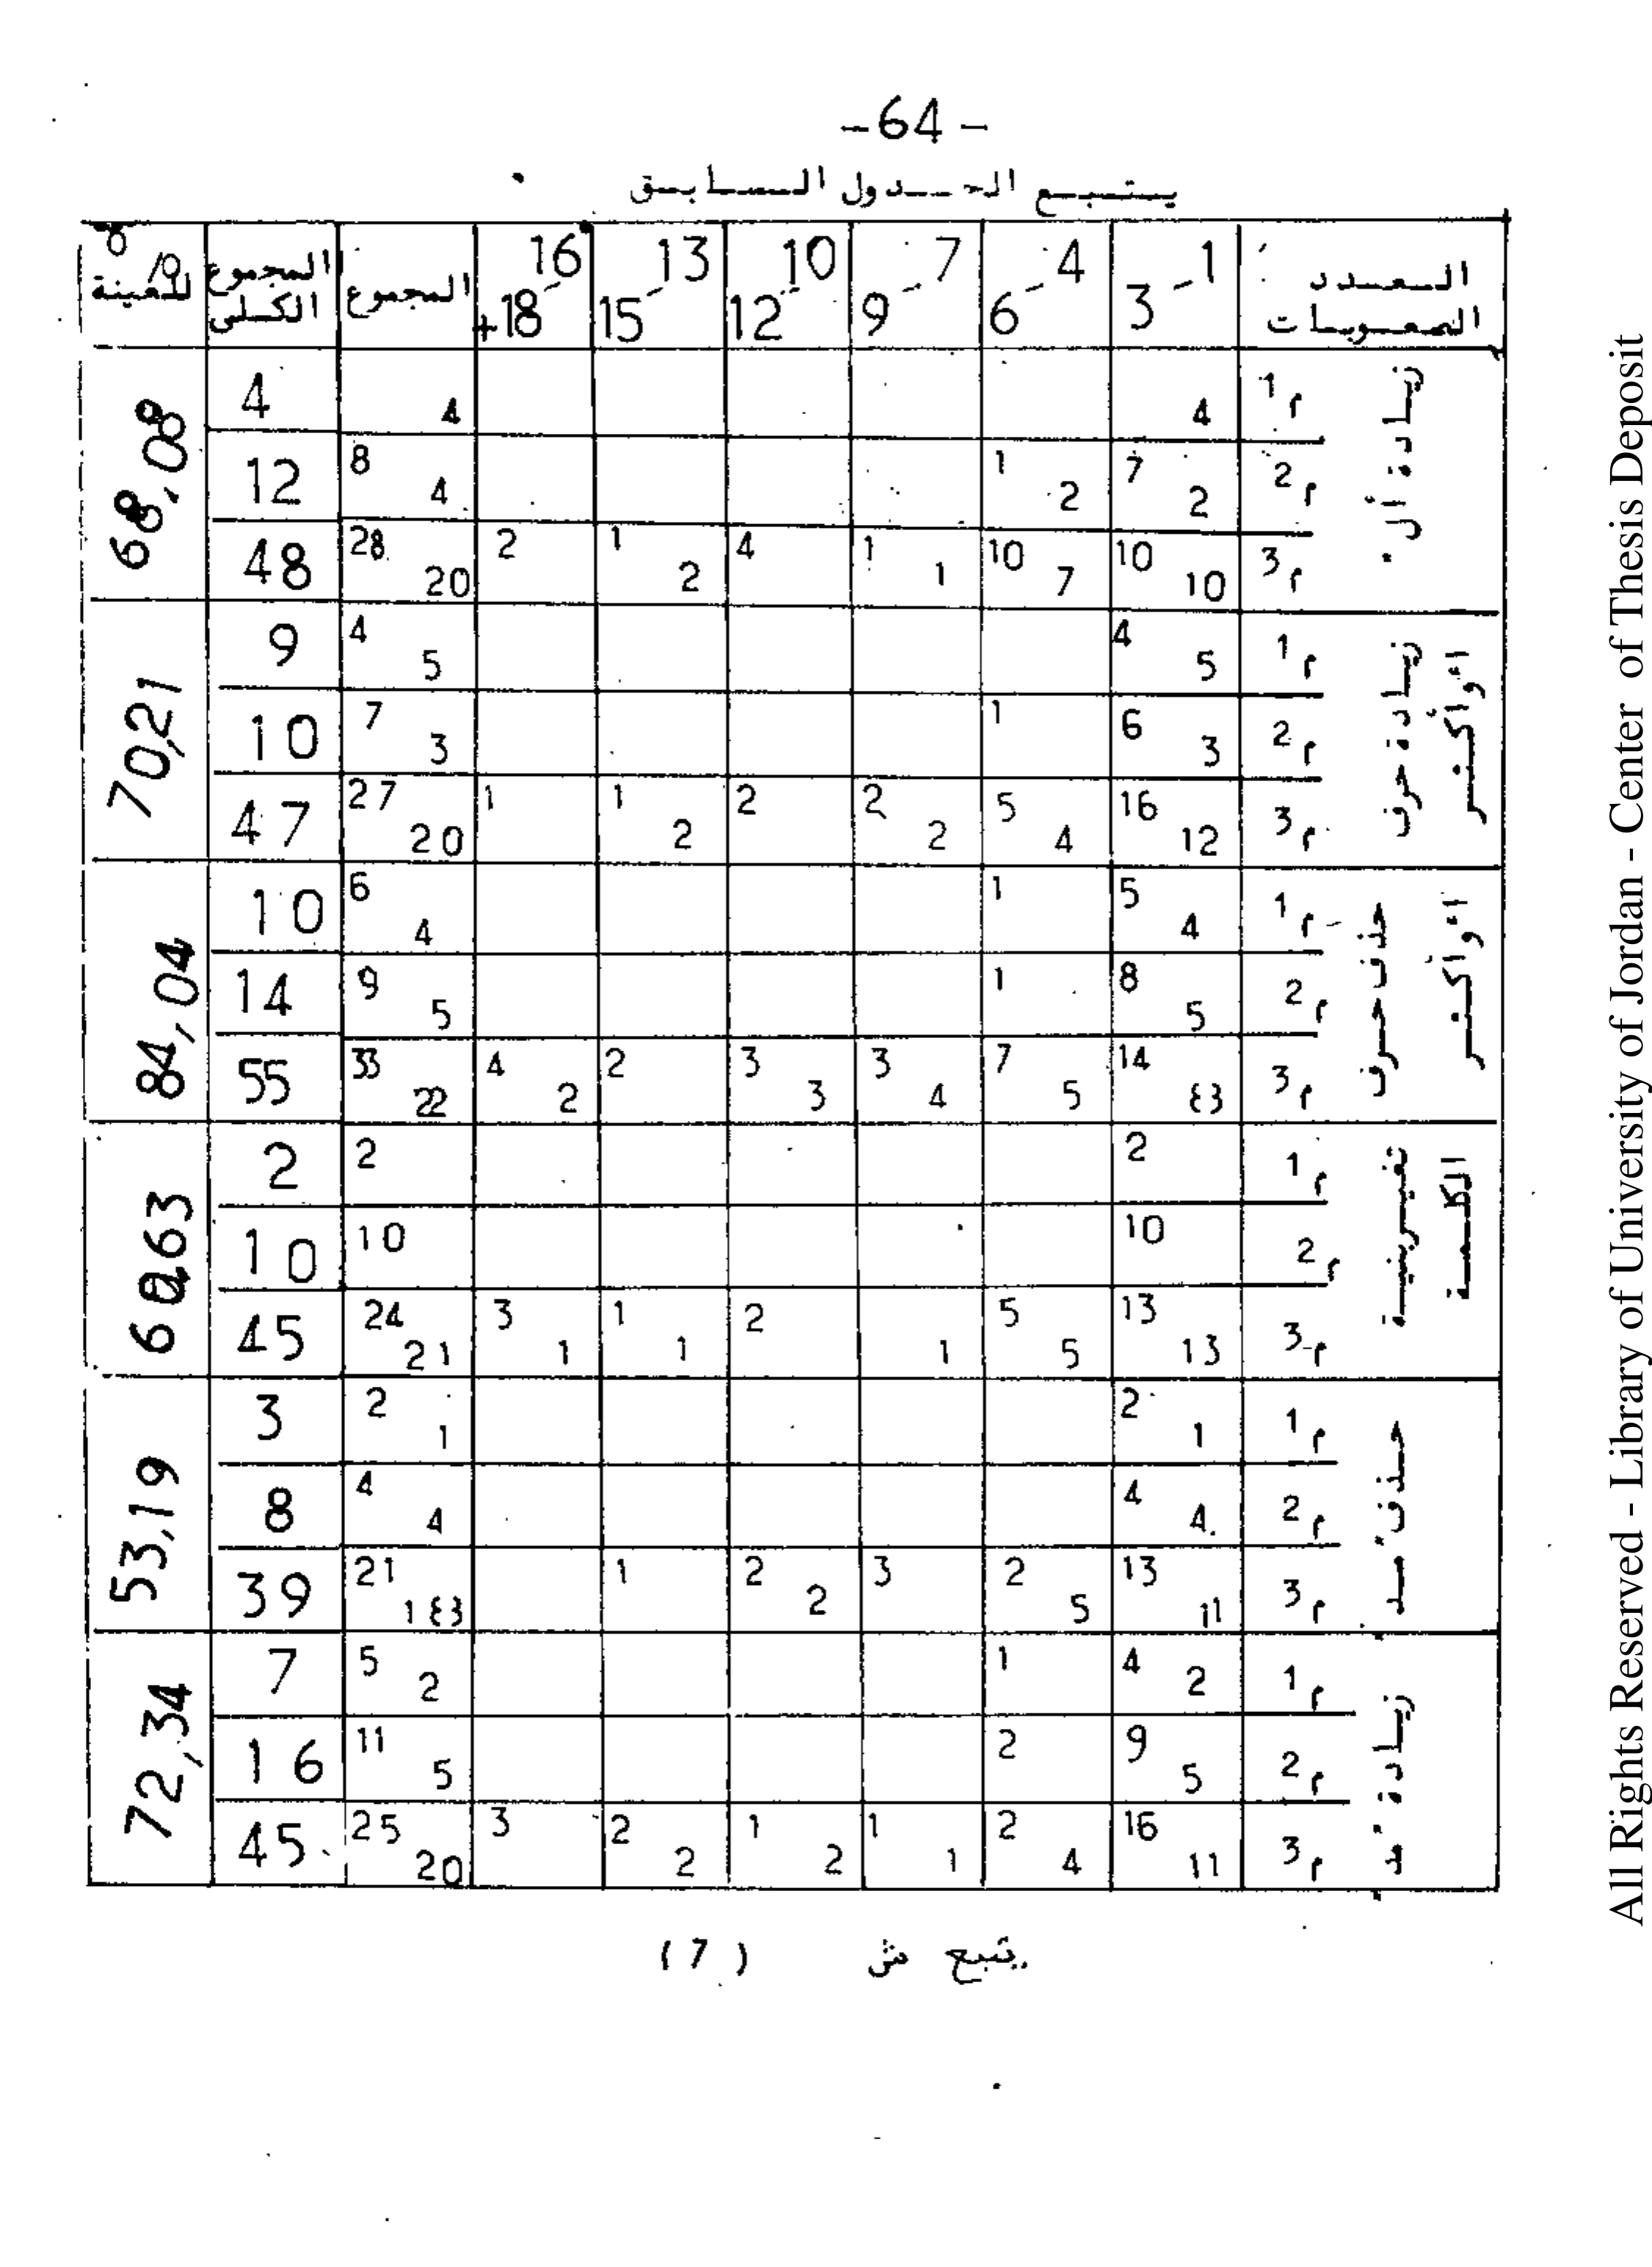 -64-
يتبع الجدول السابق
العدد الصعوبات | 1 - 3 | 4 - 6 | 7 - 9 | 10 - 12 | 13 - 15 | 16 - 18+ | المجموع | المجموع الكلى | % للعينة
زيادة أل . | م1 | 4 | | | | | | 4 | 4 | 68,08
م2 | 7 2 | 1 2 | | | | | 8 4 | 12
م3 | 10 10 | 10 7 | 1 1 | 4 | 1 2 | 2 | 28 20 | 48
زيادة حرف أو أكثر | م1 | 4 5 | | | | | | 4 5 | 9 | 70,21
م2 | 6 3 | 1 | | | | | 7 3 | 10
م3 | 16 12 | 5 4 | 2 2 | 2 | 1 2 | 1 | 27 20 | 47
حذف حرف أو أكثر | م1 | 5 4 | 1 | | | | | 6 4 | 10 | 84,04
م2 | 8 5 | 1 | | | | | 9 5 | 14
م3 | 14 | 7 5 | 3 4 | 3 3 | 2 | 4 2 | 33 22 | 55
تغيير بنية الكلمة | م1 | 2 | | | | | | 2 | 2
م2 | 10 | | | | | | 10 | 10
م3 | 13 13 | 5 5 | 1 | 2 | 1 1 | 3 1 | 24 21 | 45
حذف مد | م1 | 2 1 | | | | | | 2 1 | 3 | 53,19
م2 | 4 4 | | | | | | 4 4 | 8
م3 | 13 11 | 2 5 | 3 | 2 2 | 1 | | 21 | 39
زيادة مد | م1 | 4 2 | 1 | | | | | 5 2 | 7 | 72,34
م2 | 9 5 | 2 | | | | | 11 5 | 16
م3 | 16 11 | 2 4 | 1 1 | 1 2 | 2 2 | 3 | 25 20 | 45
يتبع ش (7)
All Rights Reserved - Library of University of Jordan - Center of Thesis Deposit